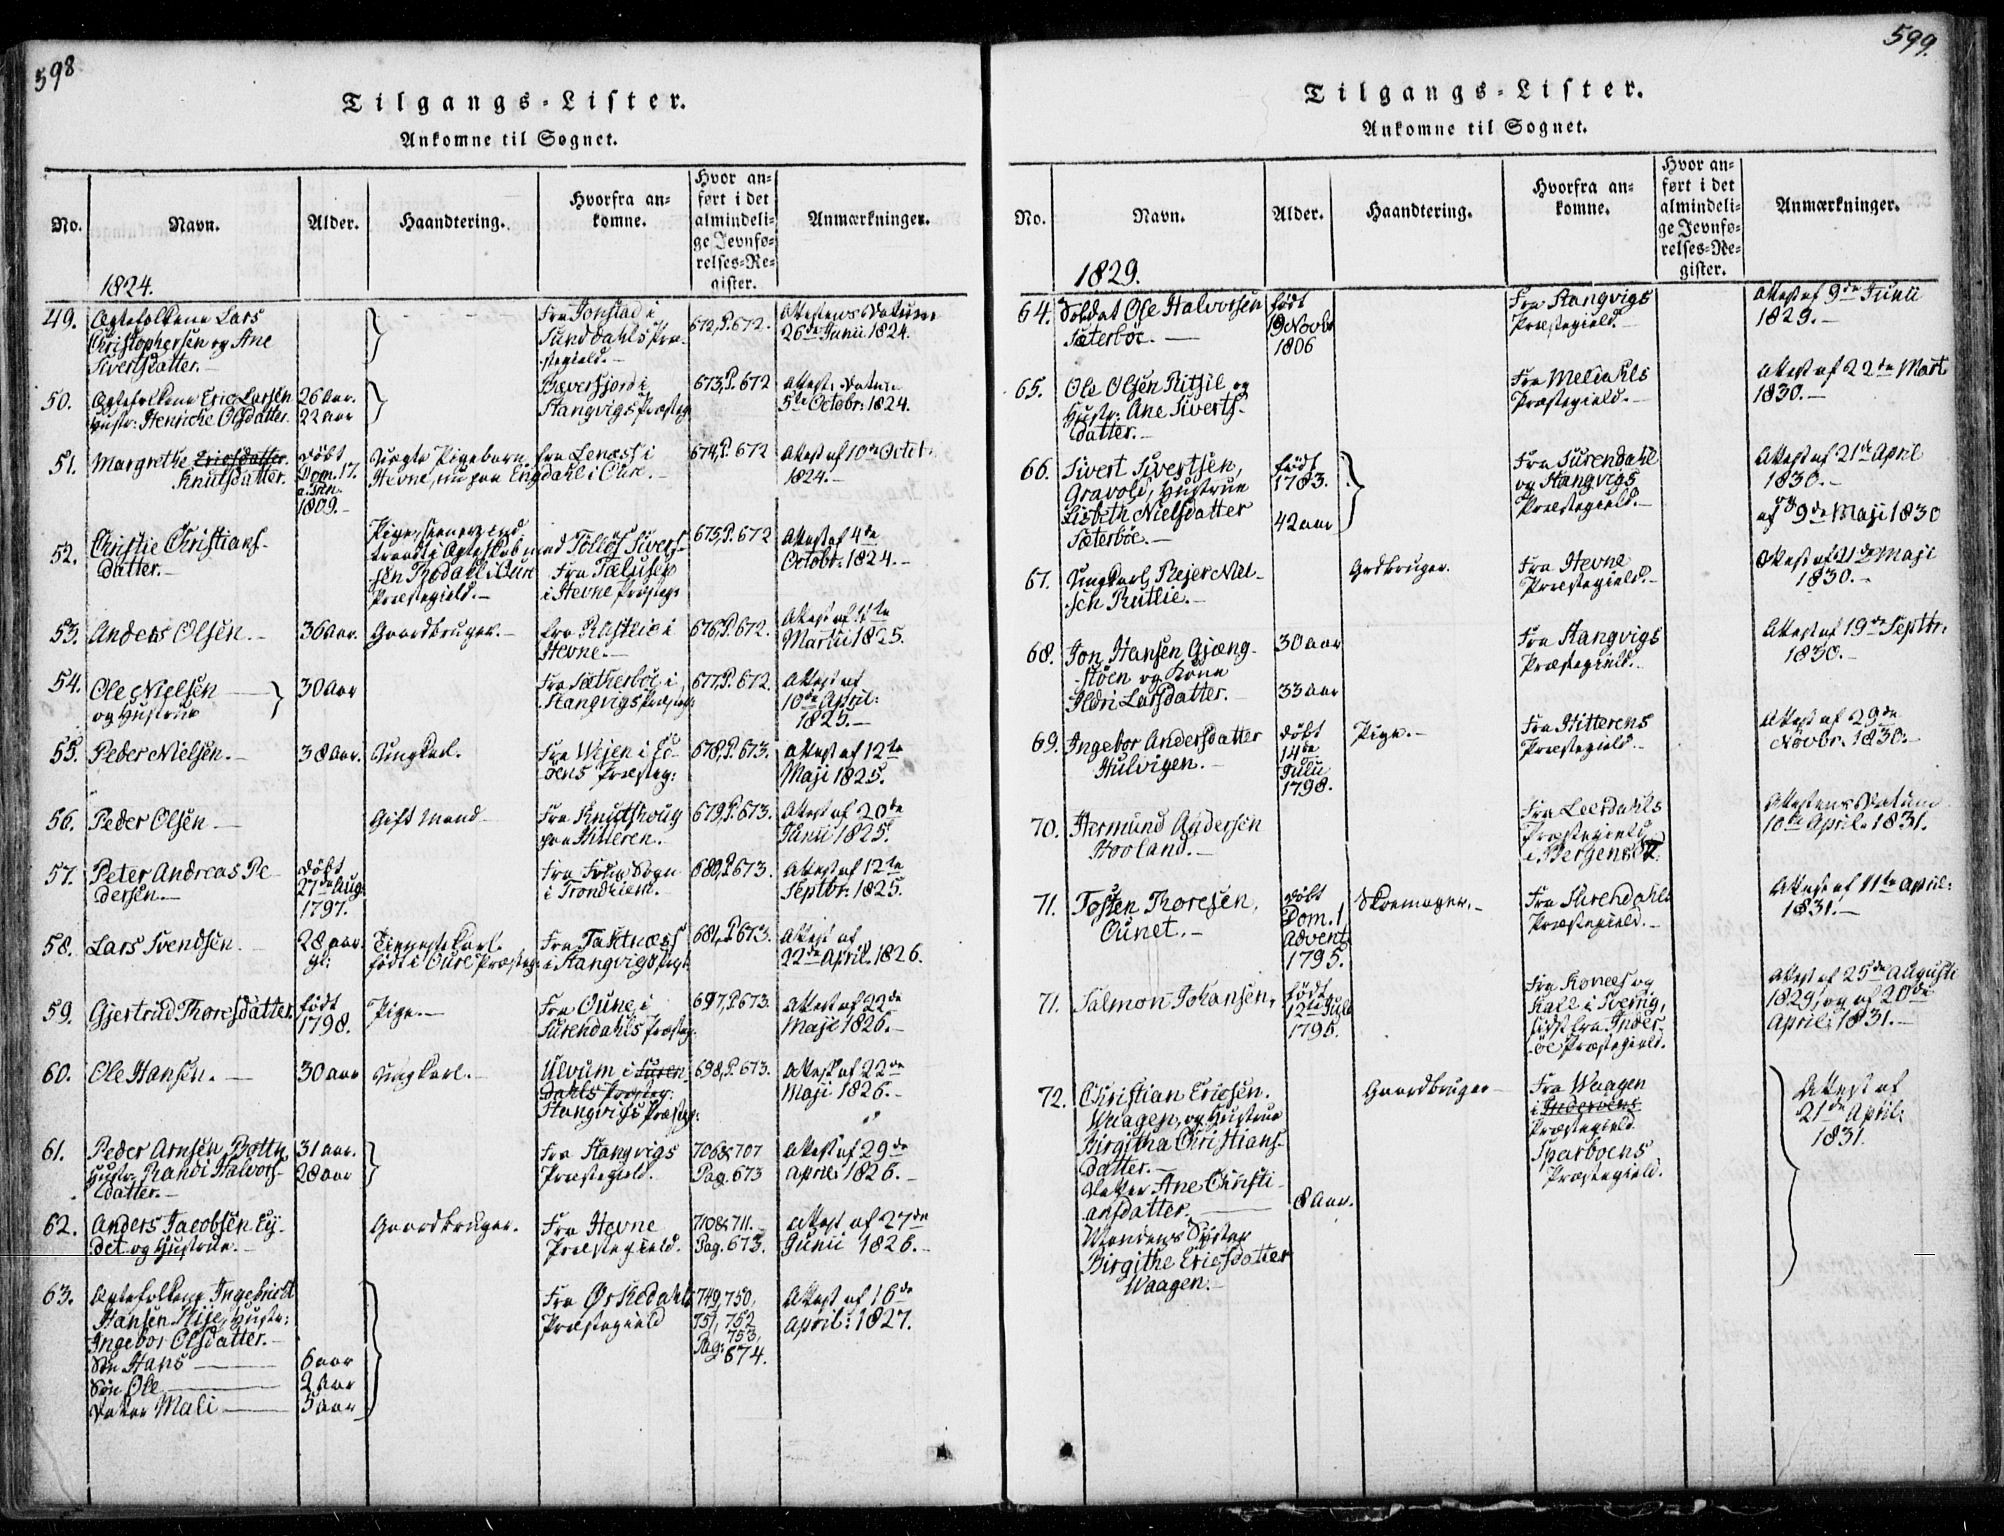 598
Tilgangs-Lister.
Ankomne til Sognet.
No.
Navn.
Alder.
Haandtering.
Hvorfra an-
komne.
Hvor an-
ført i det
almindeli-
ge Jevnfø-
relses-Re-
gister.
Anmærkninger.
1824.
49. Ægtefolkene Lars
Christophersen og Ane
Sivertsdatter.
Fra Jonstad i
Sunddahls Præ-
stegield.
672, P. 672.
Attestens Datum
26de Junii 1824.
50. Ægtefolkene Eric Larsen 26 Aar.
Hustr: Henriche Olsdatter. 22 aar
Bæverfjord i
Stangvigs Præsteg:
673, P. 672
Attests Datum
5te Octobr: 1824.
51. Margrethe Ericsdatter.
Knutsdatter.
døbt
Dom. 17.
a. Trin.
1809.
Uægte Pigebarn fra Lenæss i
Hevne, nu paa Engdahl i Oure.
674, P. 672
Attest af 10de Octbr:
1824.
52. Christie Christians-
datter.
Pige, senere ind
traadt i Ægteskab med Tolløf Sivert-
sen Rodahl i Oure
Præstegield.
Fra
i Hevne Præsteg:
675, P. 672
Attest af 4de
Octobr: 1824.
53. Anders Olsen. 36 aar. Gaardbruger.
fra Røstlie i
Hevne.
676, P. 672.
Attest af 1ste
Martii 1825.
54. Ole Nielsen
og Hustrue
30 Aar
Fra Sætherböe i
Stangvigs Præsteg:
677, P. 672.
Attest af
10de April:
1825.
55. Peder Nielsen. 38 aar. Ungkarl.
Fra Weien i Ed-
öens Præsteg:
678, P. 673.
Attest af 12te
Maji 1825.
56. Peder Olsen Gift Mand
Fra Knutshoug
paa Hitteren.
679, P. 673.
Attest af 20de
Junii 1825.
57. Peter Andreas Pe-
dersen.
døbt
27de Aug:
1797.
Fra Frue Sogn
i Trondhiem.
680, P. 673.
Attest af 12te
Septbr: 1825.
58. Lars Svendsen. 28 aar
gl:
Tienestekarl.
født i Oure Præsteg:
Fra Taftnæss
i Stangvigs Pgt:
681, P. 673.
Attest af
22de April. 1826.
59. Gjertrud Thoresdatter. født
1798.
Pige.
Fra Oune i
Surendahls Præsteg:
697, P. 673.
Attest af 22de
Maji 1826.
60. Ole Hansen. 30 aar Ungkarl.
Ulvum i Suren-
dahls Præsteg:
Stangvigs Præsteg:
698, P. 673.
Attest af 22de
Maji 1826.
61. Peder Arnsen Botten, 31 aar.
Hustr: Randi Halvors- 28 aar
datter.
Fra Stangvigs
Præstegield.
706 & 707
Pag. 673
Attest af 29de
April: 1826.
62. Anders Jacobsen Ey-
det og Hustrue.
Gaardbruger.
Fra Hevne
Præstegield.
710 & 711.
Pag. 673.
Attest af 27de
Junii 1826.
63. Ægtefolkene Ingebricht
Hansen Riise, Hustr:
Ingebor Olsdatter.
Søn Hans 6 aar
Søn Ole 2 Aar
Datter Mali 5 aar
Fra Ørkedahls
Præstegield
749, 750,
751, 752
753,
Pag: 674.
Attest af 16de
April: 1827.
599.
Tilgangs-Lister.
Ankomne til Sognet.
No.
Navn.
Alder.
Haandtering.
Hvorfra an-
komne.
Hvor an-
ført i det
almindeli-
ge Jevnfø-
relses-Re-
gister.
Anmærkninger.
1829.
64. Soldat Ole Halvorsen
Sæterböe.
født
19 Novbr
1806
Fra Stangvigs
Præstegield.
Attest af 9de Junii
1829.
65. Ole Olsen Ritsil og
Hustr: Ane Siverts-
datter.
Fra Meldahls
Præstegield.
Attest af 22de Mart:
1830.
66. Sivert Sivertsen,
Gravoli, Hustrue
Lisbeth Nielsdatter
Sæterböe.
født
1783.
42 aar
Fra Surendahl
og Stangvigs
Præstegield.
Attest af 21de April
1830.
og
af 9de Maji 1830
67. Ungkarl Rejer Niel-
sen Rutlie.
Grdbruger.
Fra Hevne
Præstegield.
Attest af 21de Maji
1830.
68. Jon Hansen Gjeng-
stöen og Kone
Ildri Larsdatter.
30 aar
33 aar
Fra Stangvigs
Præstegield.
Attest af 19de Septbr:
1830.
69. Ingebor Andersdatter
Hulvigen.
døbt
14de
Julii
1798.
Pige.
Fra Hitterens
Præstegield.
Attest af 29de
Novbr. 1830.
70. Hermund Andersen
Hovland.
Fra Leerdahls
Præstegield
i Bergens
Attestens Datum
10de April. 1831.
71. Tosten Thoresen,
Ounet.
døbt
Dom. 1
Advent
1795.
Skoemager.
Fra Surendahls
Præstegield.
Attest af 11te April:
1831.
71. Salmon Johansen,
født
12te Juli
1795.
Fra
Kall i Sverrig,
sidst fra Inder-
öe Præstegield.
Attest af 25de Augusti
1829, og af 20de
April: 1831.
72. Christian Ericsen.
Waagen, og Hustrue
Birgitha Christians-
datter.
Datter Ane Christi-
ansdatter. 8 Aar.
Mandens Syster
Birgithe Ericsdatter
Waagen.
Gaardbruger
Fra Waagen
i Inderöens
Præstegield.
Sparboens
Præstegield.
Attest af
21de April:
1831.